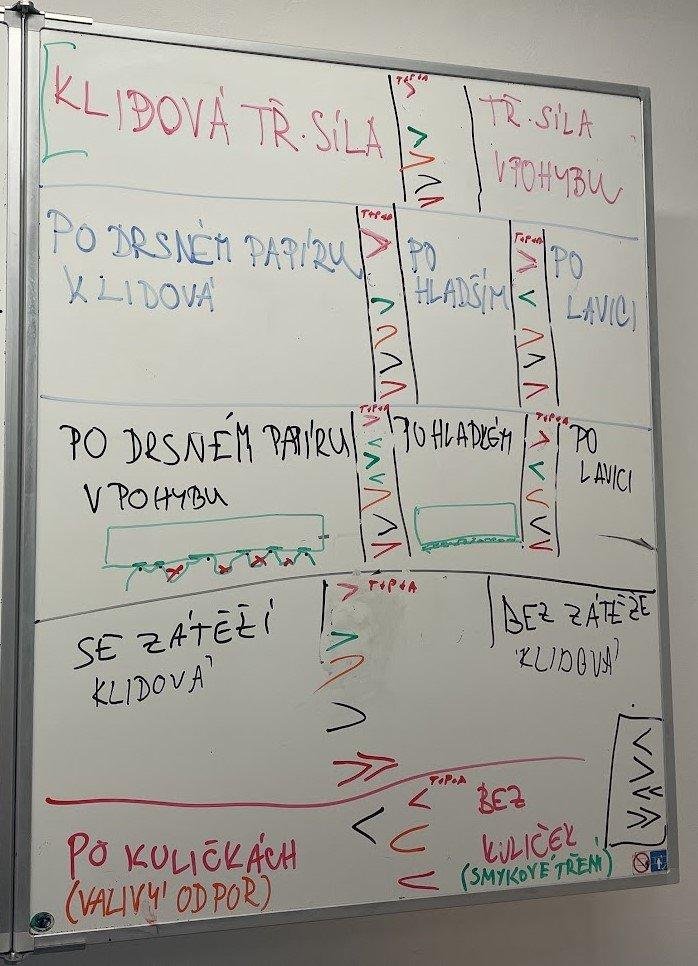 T+P+A
KLIDOVÁ TŘ. SÍLA
>
>
>
>
>
TŘ. SÍLA
V POHYBU
PO DRSNÉM PAPÍRU
KLIDOVÁ
T+P+A
>
>
>
>
>
PO
HLADŠÍM
T+P+A
>
<
>
>
>
PO
LAVICI
PO DRSNÉM PAPÍRU
V POHYBU
T+P+A
>
<
>
<
>
>
>
PO HLADKÉM
T+P+A
>
<
<
<
<
PO
LAVICI
SE ZÁTĚŽÍ
KLIDOVÁ
> T+P+A
>
>
>
>>
BEZ ZÁTĚŽE
KLIDOVÁ
<
>
<<
>>
PO KULIČKÁCH
(VALIVÝ ODPOR)
T+P+A
<
<
<
<
BEZ
KULIČEK
(SMYKOVÉ TŘENÍ)